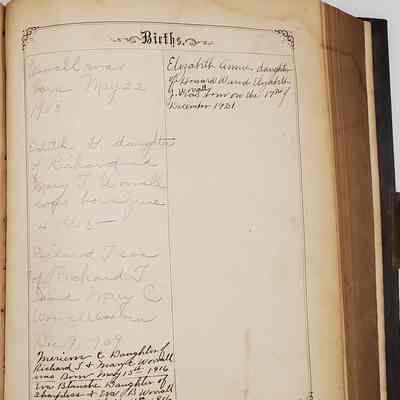 Births.
Worrall was
born May 22
1903
Edith H daughter
of Richard and
Mary T Worrall
was born June
4 1905
Richard T son
of Richard T
and Mary C
Worrall
Dec 9, 1909
Meriem C Daughter of
Richard S & Mary C Worrall
was Born May 13th 1916
Eva Blanche Daughter of
Sharpless & Eva B Worrall
Elizabeth Annie daughter
of Howard W and Elizabeth
J. Worrall
was born on the 17th of
December 1921.